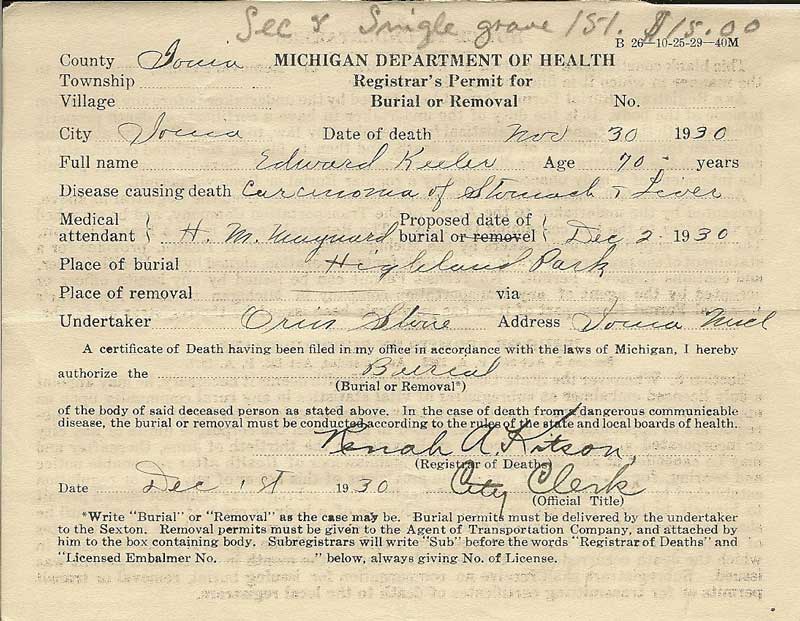 Sec 8 Single grave 151. $15.00
B 26—10-25-29—40M
County Ionia MICHIGAN DEPARTMENT OF HEALTH
Township Registrar's Permit for
Village Burial or Removal No.
City Ionia Date of death Nov 30 1930
Full name Edward Keeler Age 70 - years
Disease causing death Carcinoma of Stomach & Liver
Medical attendant } H. M. Maynard Proposed date of burial or removel } Dec 2 1930
Place of burial Highland Park
Place of removal via
Undertaker Orin Stone Address Ionia Mich
A certificate of Death having been filed in my office in accordance with the laws of Michigan, I hereby
authorize the Burial
(Burial or Removal*)
of the body of said deceased person as stated above. In the case of death from dangerous communicable
disease, the burial or removal must be conducted according to the rules of the state and local boards of health.
A. Kitson,
(Registrar of Deaths)
Date Dec 1st 1930 City Clerk
(Official Title)
*Write "Burial" or "Removal" as the case may be. Burial permits must be delivered by the undertaker
to the Sexton. Removal permits must be given to the Agent of Transportation Company, and attached by
him to the box containing body. Subregistrars will write "Sub" before the words "Registrar of Deaths" and
"Licensed Embalmer No. " below, always giving No. of License.